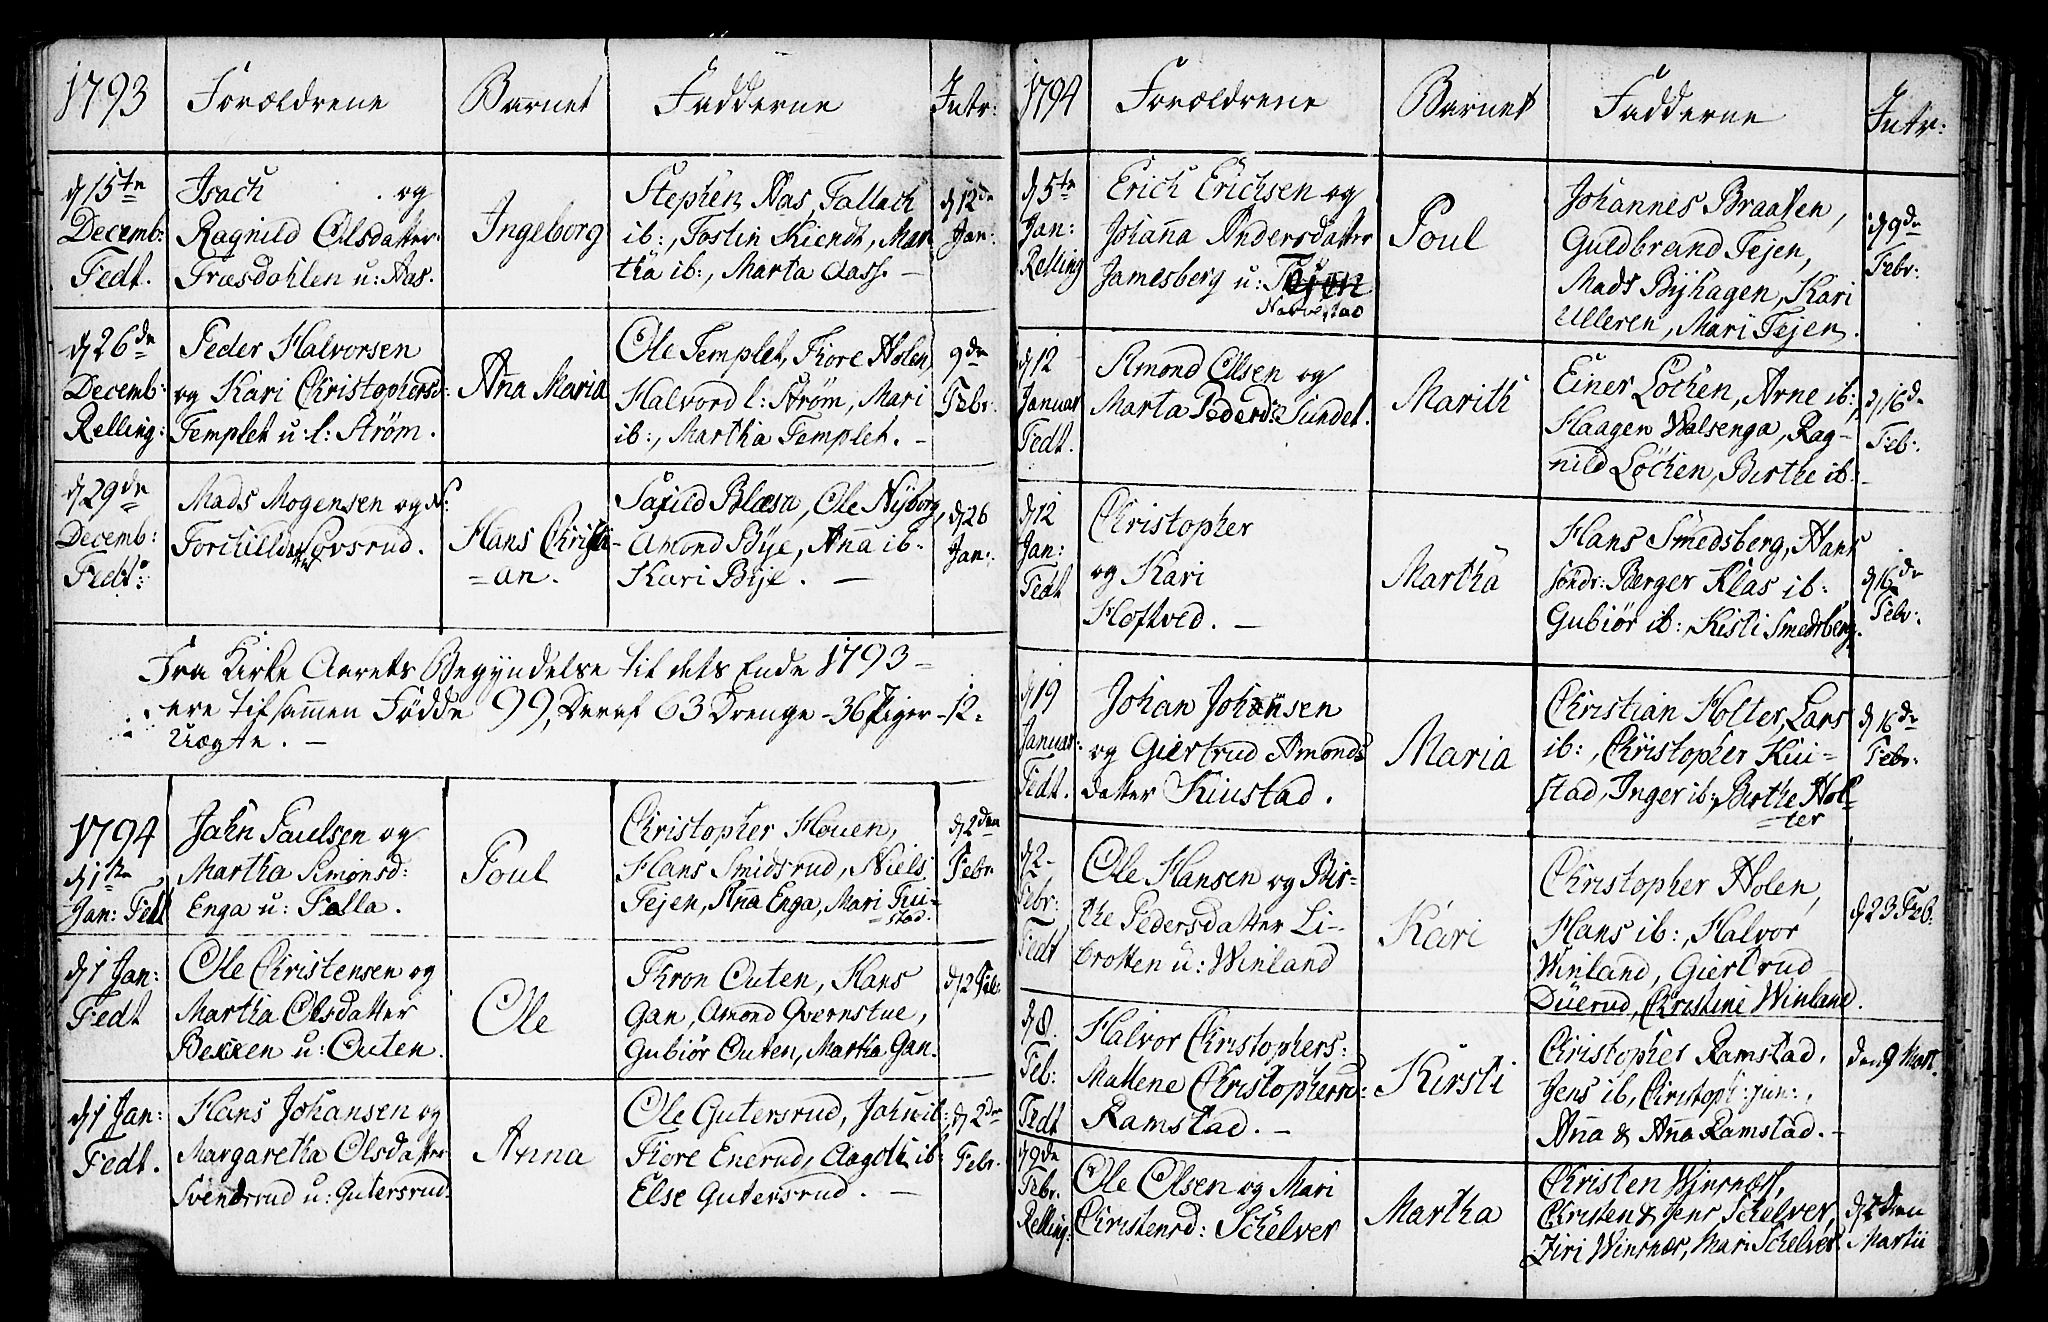 1793
Forældrene
Barnet
Fadderne
Intr:
d 15te
Decemb:
Fedt.
Isach og
Ragnild Olsdatter
Træsdahlen u: Aas.
Ingeborg
Stephen Aas, Tallach
ib:, Tostin Kiendt, Mar
tha ib:, Marta Aass. –
d 12te
Jan:
d 26de
Decemb:
Relling:
Peder Halvorsen
og Kari Christophersd:
Templet u: l: Strøm.
Aña Maria
Ole Templet, Tore Holen,
Halvord l: Strøm, Mari
ib:, Martha Templet. –
9de
Febr.
d 29de
Decemb:
Fedt:
Mads Mogensen og
Torchild Lovsrud.
Hans Christi-
=an.
Ole Nyborg,
Amond Bye, Aña ib.
Kari Bye. –
d 26
Jan:
Fra Kirke Aarets Begyndelse til dets Ende 1793 –
ere tilsammen Fødde 99, Deraf 63 Drenge – 36 Piger – 12 =
Uægte. –
1794
d 1te
Jan: Fedt
Jahn Paulsen og
Martha Simonsd:
Enga u: Falla.
Poul
Christopher Houen,
Hans Smidsrud, Niels
Tejen, Aña Enga, Mari Frii-
stad.
d 2den
Febr
d 1 Jan:
Fedt
Ole Christensen og
Martha Olsdatter
Bekken u: Outen.
Ole
Thron Outen, Hans
Gan, Amond Qvernstue,
Gubiør Outen, Martha Gan.
d 2 Feb:
d 1 Jan:
Fedt.
Hans Johansen og
Margaretha Olsdatter
Svendsrud u: Gutersrud.
Anna
Ole Gutersrud, John ib:,
Tore Enerud, Aagoth ib:
Else Gutersrud. –
d 2de
Febr.
1794
Forældrene
Barnet
Fadderne
Intr:
d 5te
Jan:
Relling
Erich Erichsen og
Johaña Andersdatter
Jamesberg u: Tejen
Nordestad
Poul
Johannes Braaten,
Guldbrand Tejen,
Mads Byhagen, Kari
Ulleren, Mari Tejen.
d 9de
Febr:
d 12
Januar
Fedt.
Amond Olsen og
Marta Pedersd: Sundet.
Marith
Einer Løchen, Arne ib:,
Haagen Walsenga, Rag-
nild Løchen, Birthe ib:
d 16de
Feb:
d 12
Jan:
Fedt
Christopher
og Kari
Hoftved. –
Martha
Hans Smedsberg, Hans
søndr: Berger Klas ib:
Gubiør ib:, Kisti Smedsberg.
d 16de
Febr:
d 19
Januar:
Fedt.
Johan Johansen
og Giertrud Amonds
datter Kiustad.
Maria
Christian Holter, Lars
ib:, Christopher Kiu-
stad, Inger ib:, Birthe Hol-
=ter
d 16de
Febr:
d 2
Febr:
Fedt
Ole Hansen og Bir=
the Pedersdatter Li-
brotten u: Winland
Kari
Christopher Holen,
Hans ib:, Halvor
Winland, Giertrud
Düerud, Christine Winland.
d 23 Feb.
d 8.
Feb:
Fedt
Halvor Christophers:
Mallene Christophersd:
Ramstad. –
Kirsti
Christopher Ramstad,
Jens ib, Christoph: jun:,
Aña & Aña Ramstad. –
den 9 Mart.
d 9de
Febr.
Relling:
Ole Olsen og Mari
Christensd: Schelver
Martha
Christen Winsnæs,
Christen & Jens Schelver,
Siri Winsnæs, Mari Schelver
Martii